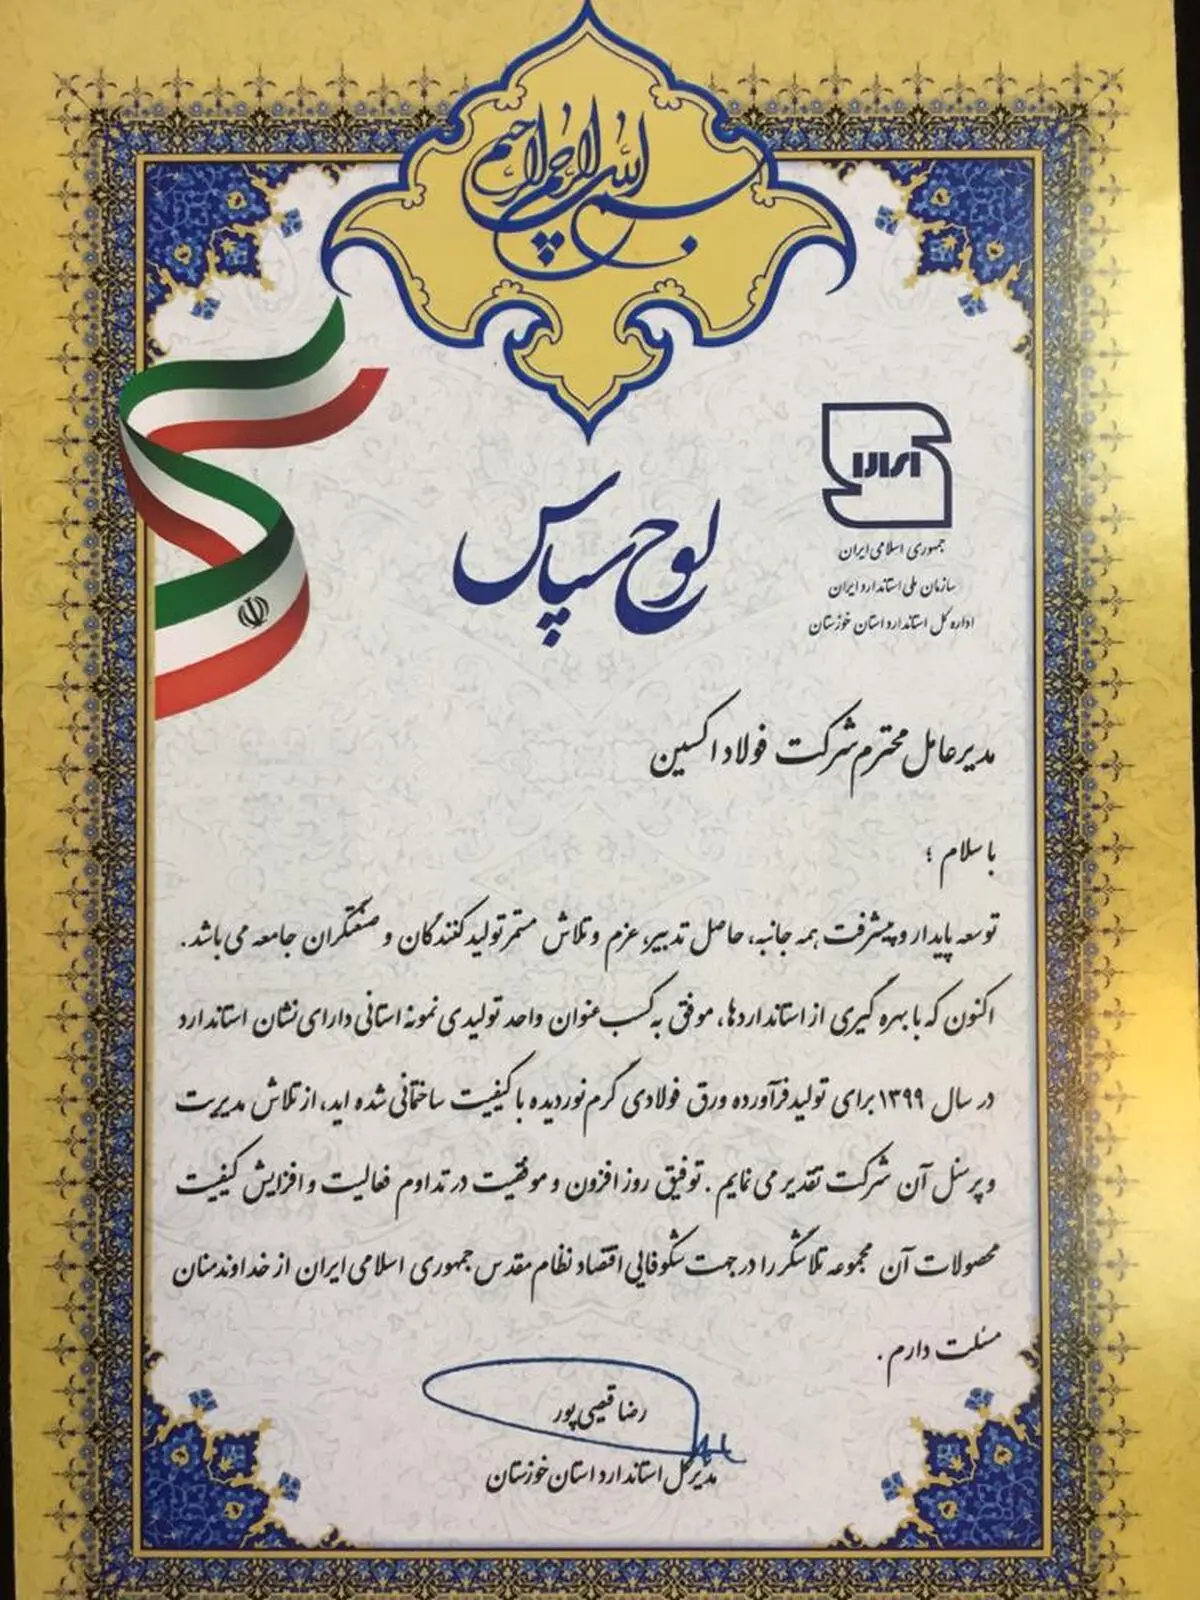 بسم الله الرحمن الرحیم
ایران
جمهوری اسلامی ایران
سازمان ملی استاندارد ایران
اداره کل استاندارد استان خوزستان
لوح سپاس
مدیر عامل محترم شرکت فولاد اکسین
با سلام ؛
توسعه پایدار و پیشرفت همه جانبه، حاصل تدبیر، عزم و تلاش مستمر تولید کنندگان و صنعتگران جامعه می باشد.
اکنون که با بهره گیری از استانداردها، موفق به کسب عنوان واحد تولیدی نمونه استانی دارای نشان استاندارد
در سال ۱۳۹۹ برای تولید فرآورده ورق فولادی گرم نوردیده با کیفیت ساختمانی شده اید، از تلاش مدیریت
و پرسنل آن شرکت تقدیر می نمایم. توفیق روز افزون و موفقیت در تداوم فعالیت و افزایش کیفیت
محصولات آن مجموعه تلاشگر را در جهت شکوفایی اقتصاد نظام مقدس جمهوری اسلامی ایران از خداوند منان
مسئلت دارم.
رضا قیصی پور
مدیر کل استاندارد استان خوزستان